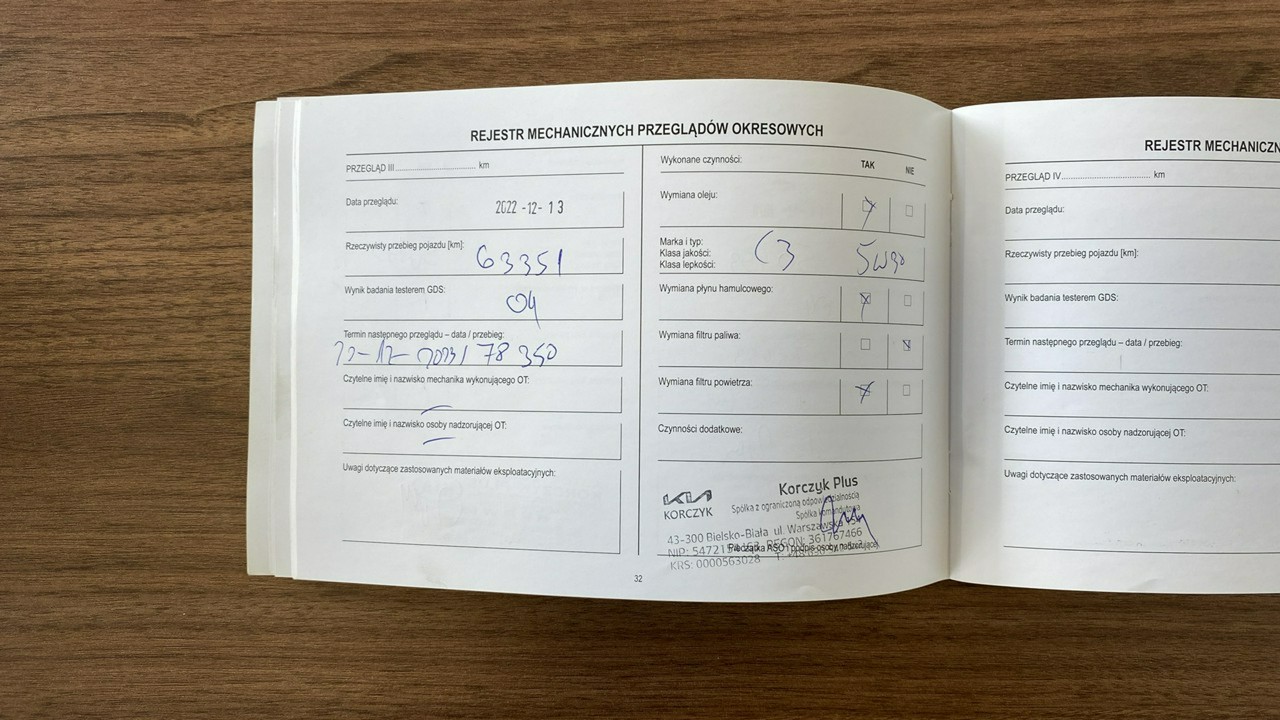 REJESTR MECHANICZNYCH PRZEGLĄDÓW OKRESOWYCH
PRZEGLĄD III.............................. km
Data przeglądu: 2022 -12- 13
Rzeczywisty przebieg pojazdu [km]: 63351
Wynik badania testerem GDS: 04
Termin następnego przeglądu – data / przebieg:
12- 2023/ 78 350
Czytelne imię i nazwisko mechanika wykonującego OT:
Czytelne imię i nazwisko osoby nadzorującej OT:
Uwagi dotyczące zastosowanych materiałów eksploatacyjnych:
Wykonane czynności: TAK NIE
Wymiana oleju:
Marka i typ:
Klasa jakości: C3 5W30
Klasa lepkości:
Wymiana płynu hamulcowego:
Wymiana filtru paliwa:
Wymiana filtru powietrza:
Czynności dodatkowe:
KIA
KORCZYK
Korczyk Plus
Spółka z ograniczoną odpowiedzialnością
Spółka komandytowa
43-300 Bielsko-Biała ul. Warszawska
NIP: REGON: 361767466
KRS: 0000563028
Pieczątka ASO i podpis osoby nadzorującej
32
REJESTR MECHANICZN
PRZEGLĄD IV................................. km
Data przeglądu:
Rzeczywisty przebieg pojazdu [km]:
Wynik badania testerem GDS:
Termin następnego przeglądu – data / przebieg:
Czytelne imię i nazwisko mechanika wykonującego OT:
Czytelne imię i nazwisko osoby nadzorującej OT:
Uwagi dotyczące zastosowanych materiałów eksploatacyjnych: